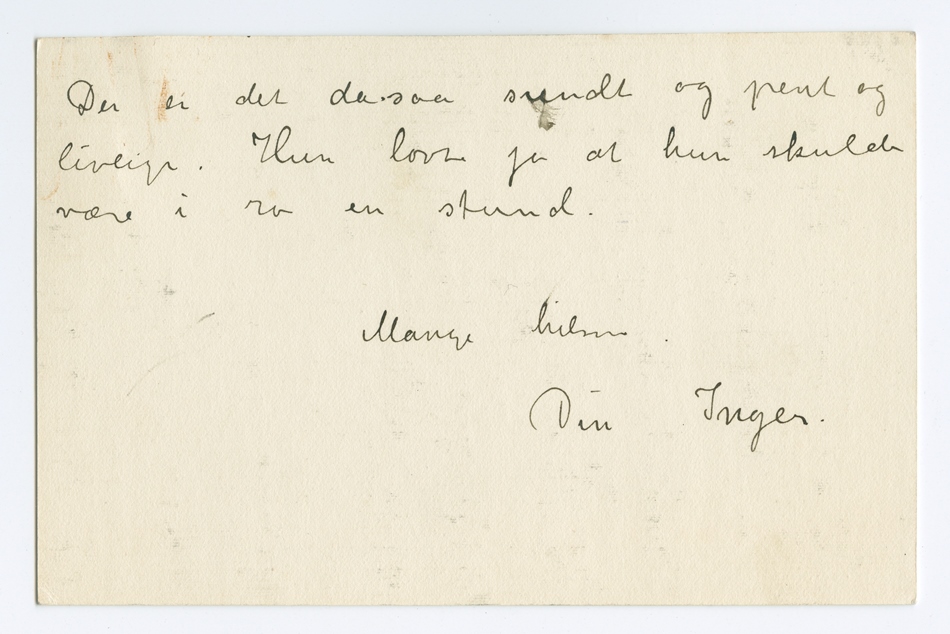 Der er det da saa sundt og pent og
liveigr. Hun lovte jo at hun skulde
være i ro en stund.
Mange hilsen.
Din Inger.